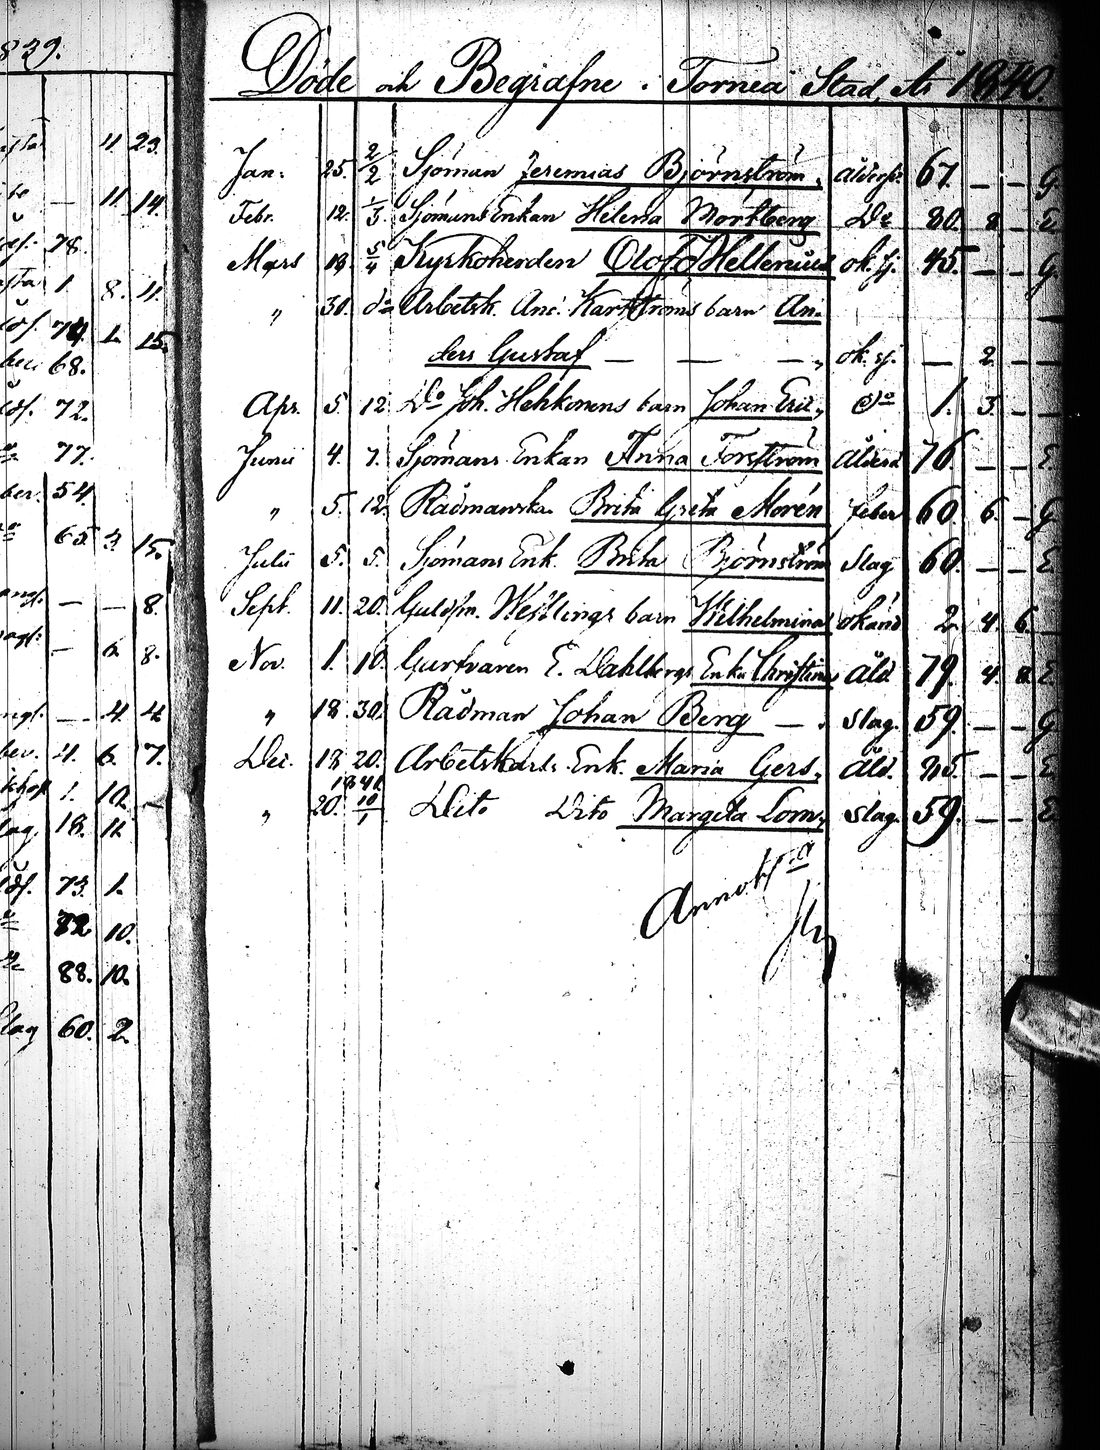 839.
11. 23.
— 11. 14.
78.
1. 8. 11.
74. 1. 15.
68.
72.
77.
54.
65. 3. 15.
— — 8.
— 6. 8.
— 4. 4.
4. 6. 7.
1. 10. —
18. 11.
73. 1.
10.
88. 10.
60. 2.
Döde och Begrafne i Torneå Stad, År 1840.
Jan. 25. 2/2 Sjöman Jeremias Björnström, 67. — — G
Febr. 12. 1/3 Sjömans Enkan Helena Mörtberg Do 80. 8 — E
Mars 19. 5/4 Kyrkoherden Olof Hellenius ok. sj. 45. — — G
" 30. do Arbetsk. And. Karlströms barn An- —
ders Gustaf — — — „ ok. sj. — 2. — —
Apr. 5. 12. Do Joh. Hehkonens barn Johan Eric, do 1. 3. — —
Junii 4. 7. Sjömans Enkan Anna Forsström Ålderd 76 — — E
" 5. 12. Rådmanska Brita Greta Morén feber 60. 6. — G
Julii 5. 5. Sjömans Enk. Brita Björnström Slag 60. — — E
Sept. 11. 20. Guldsm. Wesslings barn Wilhelmina okänd 2. 4. 6. —
Nov. 1. 10. Garfvaren E. Dahlbergs Enka Christina Åld. 79. 4. 8. E
" 18. 30. Rådman Johan Berg — . Slag. 59. — — G
Dec. 18. 20. Arbetskarls Enk. Maria Gers, Åld. 85. — — E
1841.
" 20. 10/1 Dito Dito Margeta Lom, Slag. 59. — — E